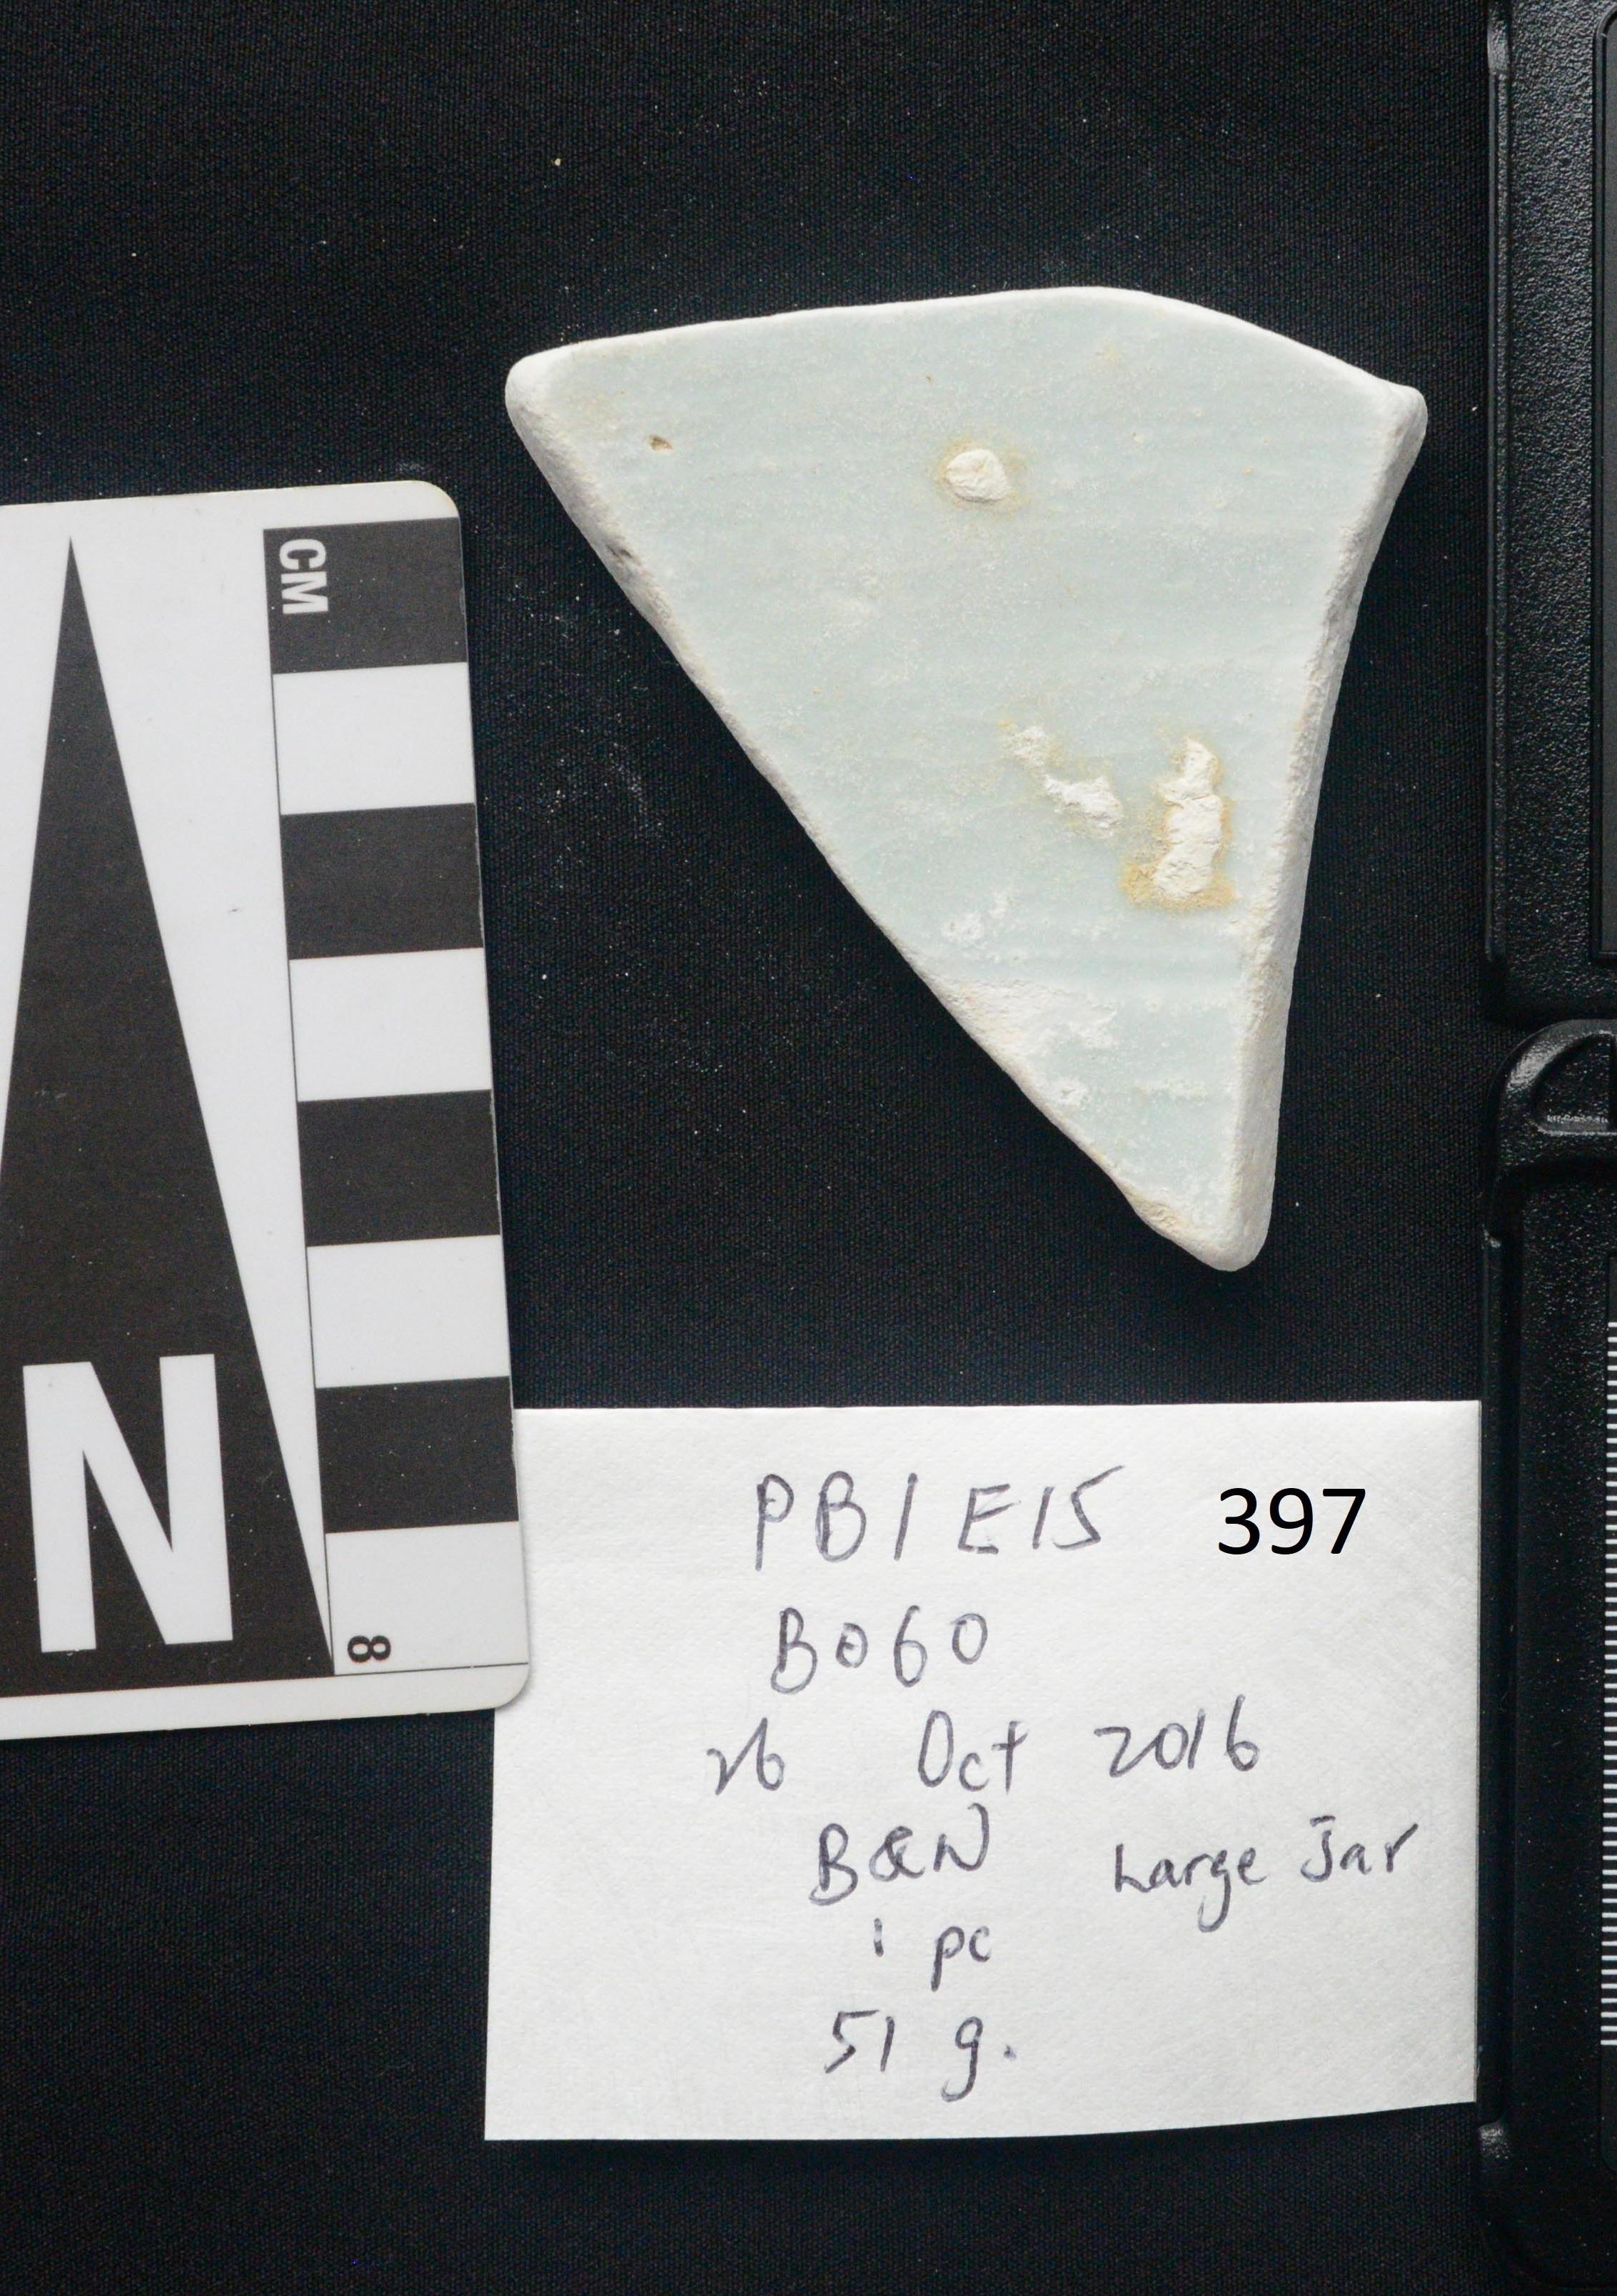 CM
N
8
PB1E15 397
B060
26 Oct 2016
B&W Large Jar
1 pc
51 g.